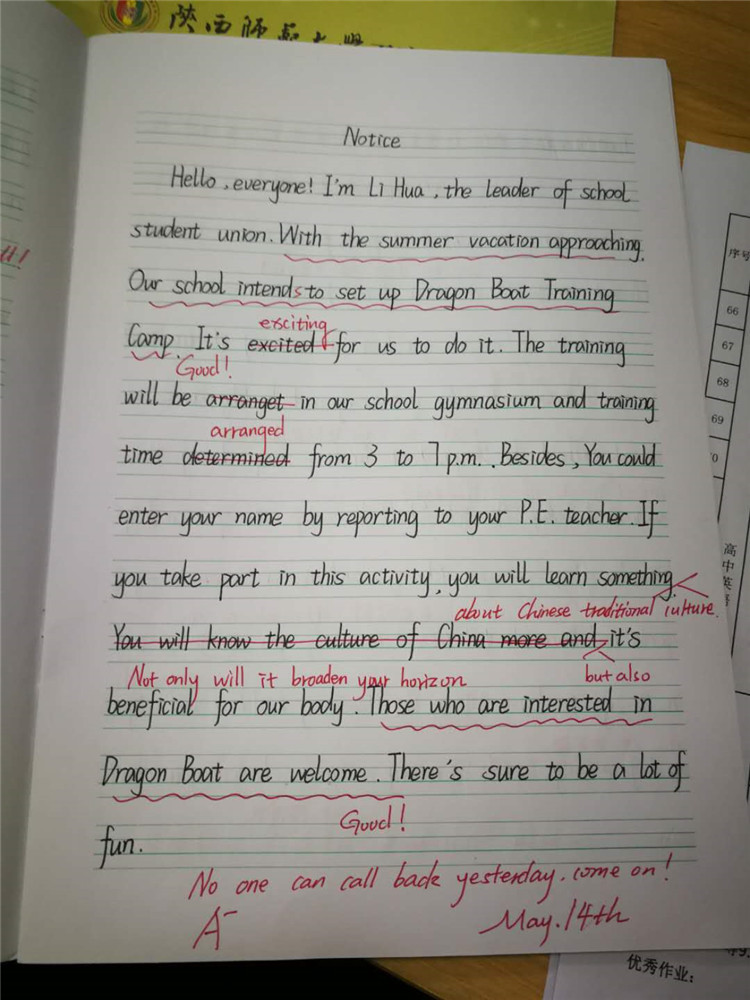 陕西师范大学
Notice
Hello, everyone! I'm Li Hua, the leader of school
student union. With the summer vacation approaching.
Our school intends to set up Dragon Boat Training
exsciting
Camp. It's excited for us to do it. The training
Good!
will be arranget in our school gymnasium and training
arranged
time determined from 3 to 7 p.m.. Besides, You could
enter your name by reporting to your P.E. teacher. If
you take part in this activity, you will learn something.
about Chinese traditional culture.
You will know the culture of China more and it's
Not only will it broaden your horizon but also
beneficial for our body. Those who are interested in
Dragon Boat are welcome. There's sure to be a lot of
Good!
fun.
No one can call back yesterday. come on!
A-
May. 14th
序号
66
67
68
69
高中英
优秀作业: